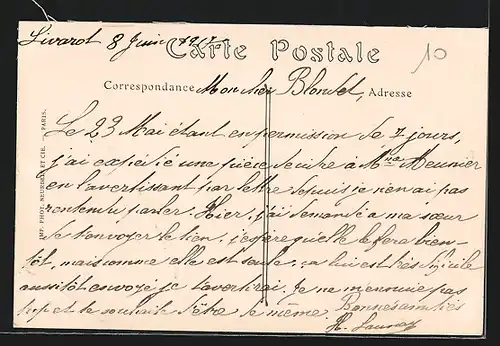 Livarot 8 Juin 1917
Carte Postale
10
Correspondance
Adresse
Mon cher Blondel,
Le 23 Mai étant en permission de 7 jours,
j'ai expédié une pièce de cidre à Mme Meunier
en l'avertissant par lettre depuis je n'en ai pas
entendu parler. Hier, j'ai demandé a ma sœur
de t'envoyer le tien, j'espère qu'elle le fera bien-
tôt, mais comme elle est seule, ça lui est très dificile
aussitôt envoyé je t'avertirai. Je ne m'ennuie pas
trop et te souhaite d'être le même. Bonnes amitiés
H.
IMP. PHOT. NEURDEIN ET CIE. — PARIS.